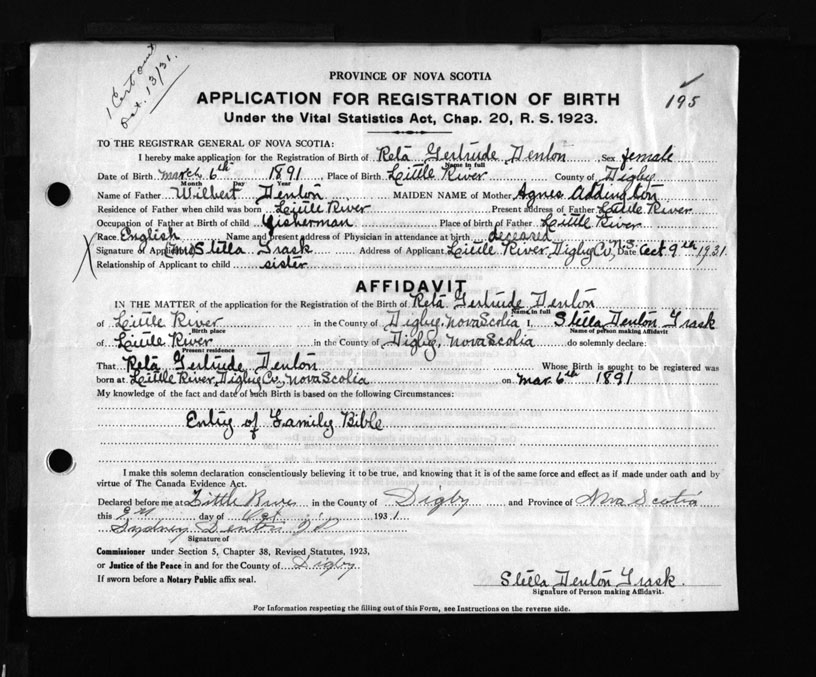 1 Cert out
Oct. 13/31.
195
PROVINCE OF NOVA SCOTIA
APPLICATION FOR REGISTRATION OF BIRTH
Under the Vital Statistics Act, Chap. 20, R. S. 1923.
TO THE REGISTRAR GENERAL OF NOVA SCOTIA:
I hereby make application for the Registration of Birth of Reta Gertrude Denton Sex female
Name in full
Date of Birth March 6th 1891 Place of Birth Little River County of Digby
Month Day Year
Name of Father Wilbert Denton MAIDEN NAME of Mother Agnes Addington
Residence of Father when child was born Little River Present address of Father Little River
Occupation of Father at Birth of child Fisherman Place of birth of Father Little River
Race English Name and present address of Physician in attendance at birth deceased
Signature of Applicant Mrs Stella Trask Address of Applicant Little River, Digby Co, N.S. Date Oct 9th 1931.
Relationship of Applicant to child sister
AFFIDAVIT
IN THE MATTER of the application for the Registration of the Birth of Reta Gertrude Denton
Name in full
of Little River in the County of Digby, Nova Scotia I, Stella Denton Trask
Birth place Name of person making Affidavit
of Little River in the County of Digby, Nova Scotia do solemnly declare:
Present residence
That Reta Gertrude Denton Whose Birth is sought to be registered was
born at Little River, Digby Co, Nova Scotia on Mar. 6th 1891
My knowledge of the fact and date of such Birth is based on the following Circumstances:
Entry of Family Bible
I make this solemn declaration conscientiously believing it to be true, and knowing that it is of the same force and effect as if made under oath and by
virtue of The Canada Evidence Act.
Declared before me at Little River in the County of Digby and Province of Nova Scotia
this day of Oct 1931
Sydney Denton J P
Signature of
Commissioner under Section 5, Chapter 38, Revised Statutes, 1923,
or Justice of the Peace in and for the County of Digby
If sworn before a Notary Public affix seal.
Stella Denton Trask.
Signature of Person making Affidavit.
For Information respecting the filling out of this Form, see Instructions on the reverse side.